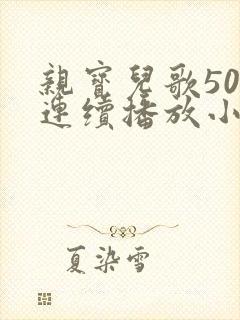 親寶兒歌50
連續播放小
夏染雪